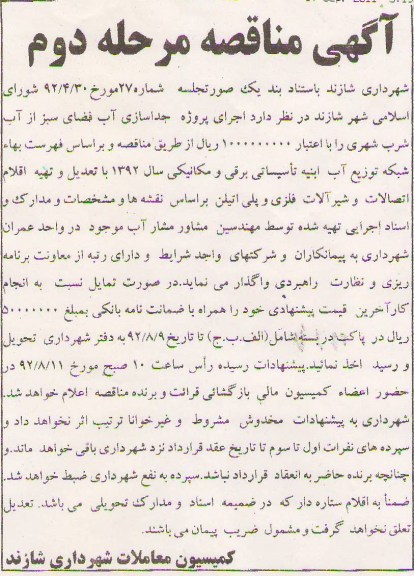 آگهی مناقصه مرحله دوم
شهرداری شازند باستناد بند یک صورتجلسه شماره ۲۷مورخ ۹۲/۴/۳۰ شورای
اسلامی شهر شازند در نظر دارد اجرای پروژه جداسازی آب فضای سبز از آب
شرب شهری را با اعتبار ۱۰۰۰۰۰۰۰۰۰ ریال از طریق مناقصه و براساس فهرست بهاء
شبکه توزیع آب ابنیه تأسیساتی برقی و مکانیکی سال ۱۳۹۲ با تعدیل و تهیه اقلام
اتصالات و شیرآلات فلزی و پلی اتیلن براساس نقشه ها و مشخصات و مدارک و
اسناد اجرایی تهیه شده توسط مهندسین مشاور مشار آب موجود در واحد عمران
شهرداری به پیمانکاران و شرکتهای واجد شرایط و دارای رتبه از معاونت برنامه
ریزی و نظارت راهبردی واگذار می نماید.در صورت تمایل نسبت به انجام
کارآخرین قیمت پیشنهادی خود را همراه با ضمانت نامه بانکی بمبلغ ۵۰۰۰۰۰۰۰
ریال در پاکت دربسته شامل(الف.ب.ج) تا تاریخ ۹۲/۸/۹ به دفتر شهرداری تحویل
و رسید اخذ نمائید.پیشنهادات رسیده رأس ساعت ۱۰ صبح مورخ ۹۲/۸/۱۱ در
حضور اعضاء کمیسیون مالی بازگشائی قرائت و برنده مناقصه اعلام خواهد شد.
شهرداری به پیشنهادات مخدوش مشروط و غیرخوانا ترتیب اثر نخواهد داد و
سپرده های نفرات اول تا سوم تا تاریخ عقد قرارداد نزد شهرداری باقی خواهد ماند.و
چنانچه برنده حاضر به انعقاد قرارداد نباشد.سپرده به نفع شهرداری ضبط خواهد شد.
ضمناً به اقلام ستاره دار که در ضمیمه اسناد و مدارک تحویلی می باشد. تعدیل
تعلق نخواهد گرفت و مشمول ضریب پیمان می باشند.
کمیسیون معاملات شهرداری شازند